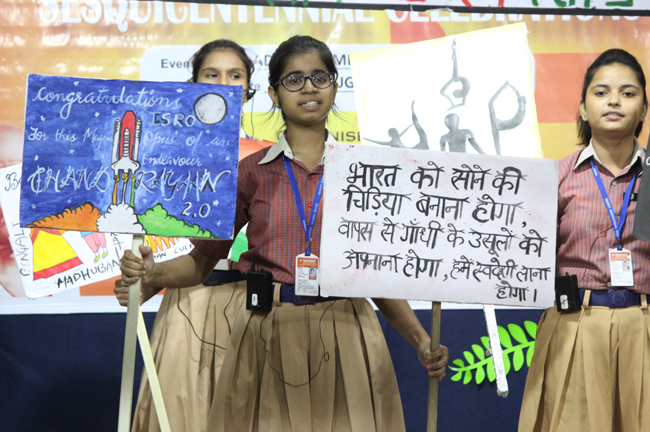 SESQUICENTENNIAL CELEBRATIONS
Congratulations
ISRO
For this Magnum Opus' of an
endeavour
CHANDRAYAAN
2.0
MADHUBANI
भारत को सोने की
चिड़िया बनाना होगा,
वापस से गाँधी के उसूलों को
अपनाना होगा, हमें स्वदेशी लाना
होगा।